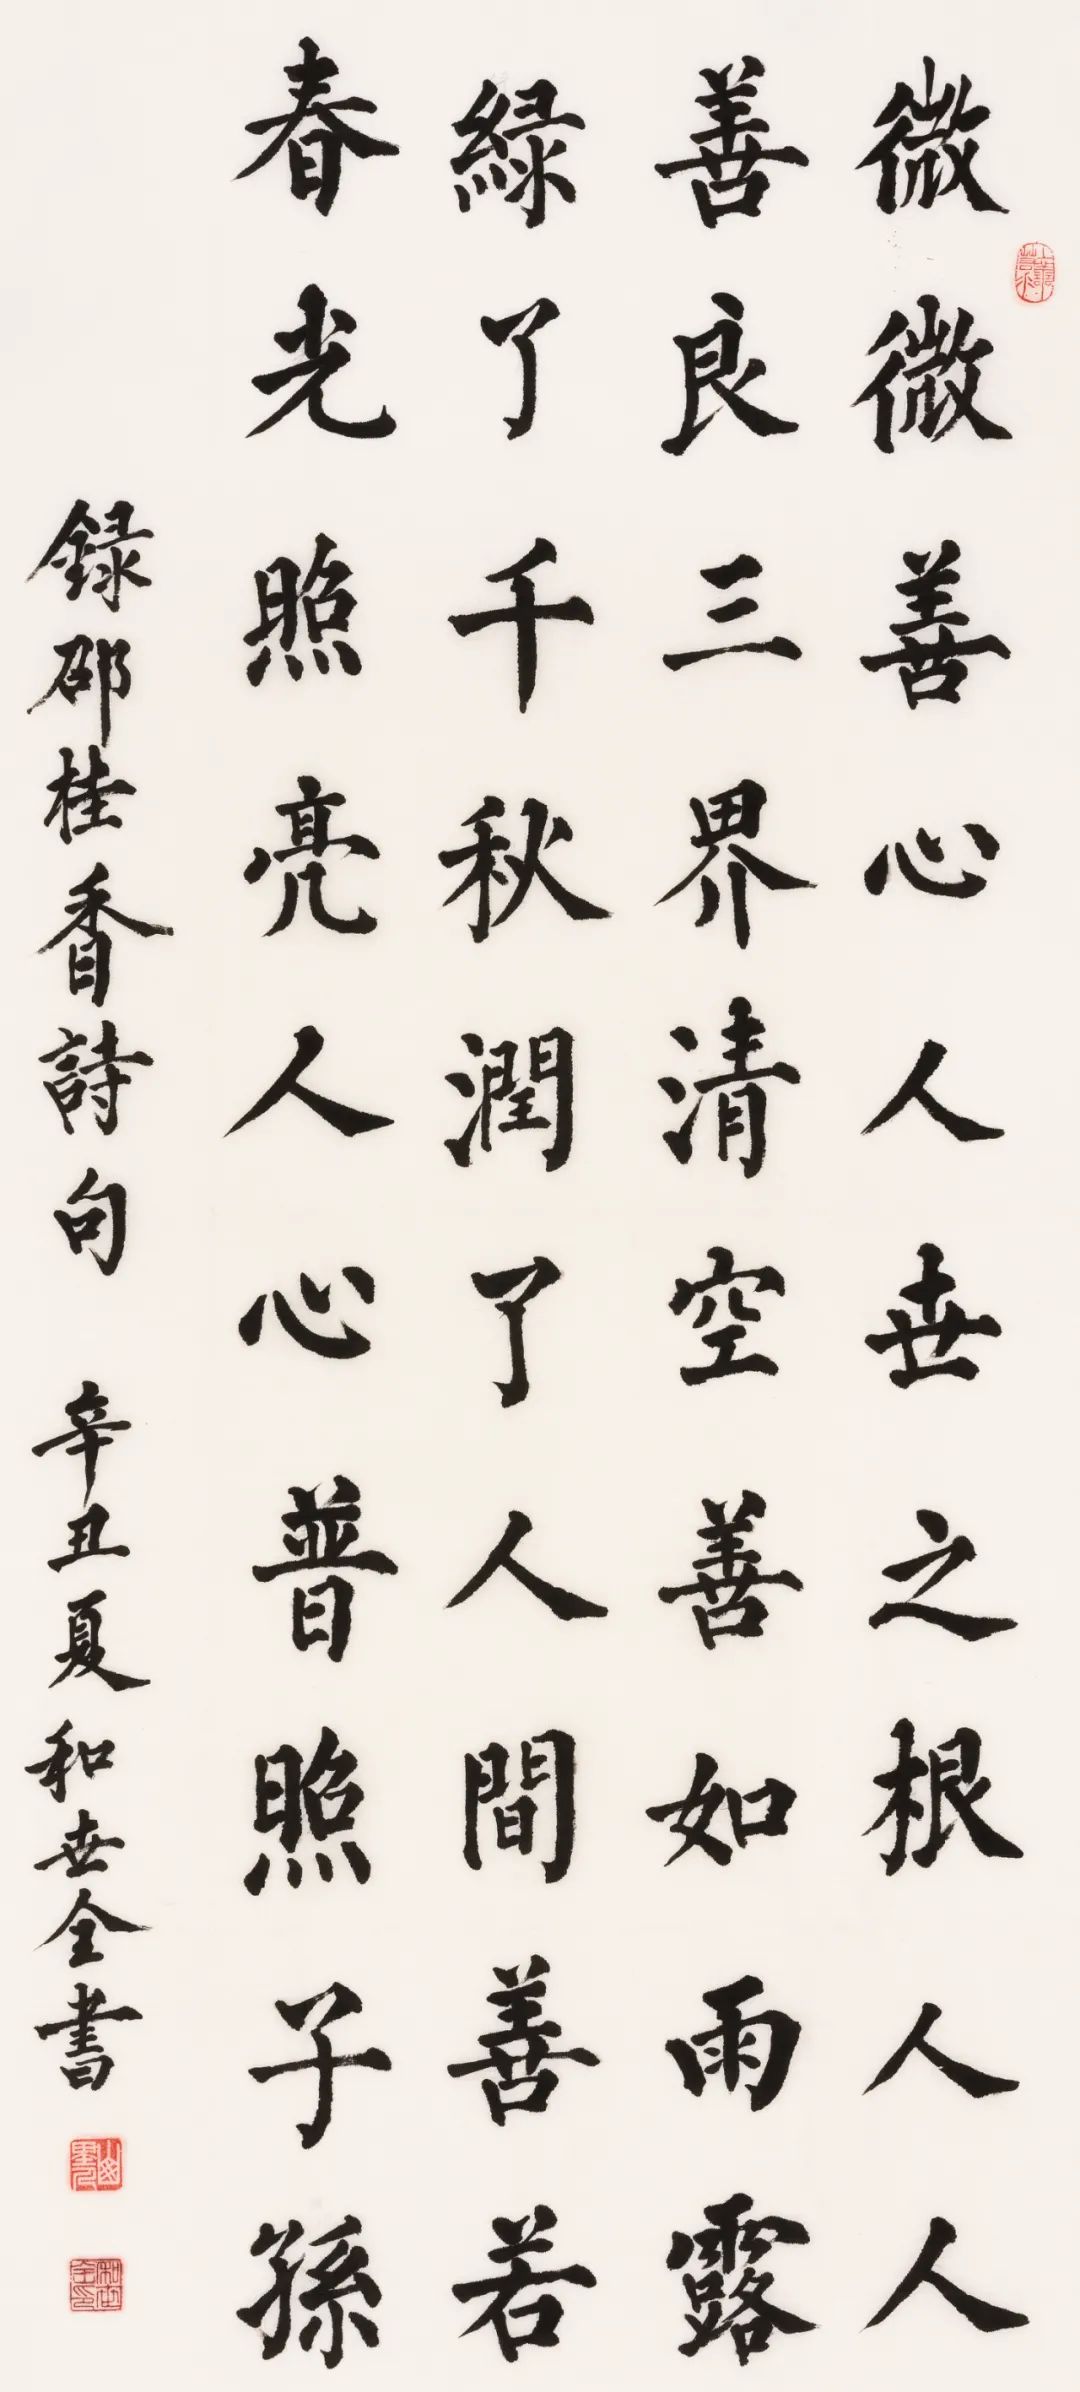 微微善心人世之根人人
善良三界清空善如雨露
綠了千秋潤了人間善若
春光照亮人心普照子孫
録邵桂香詩句 辛丑夏和世全書